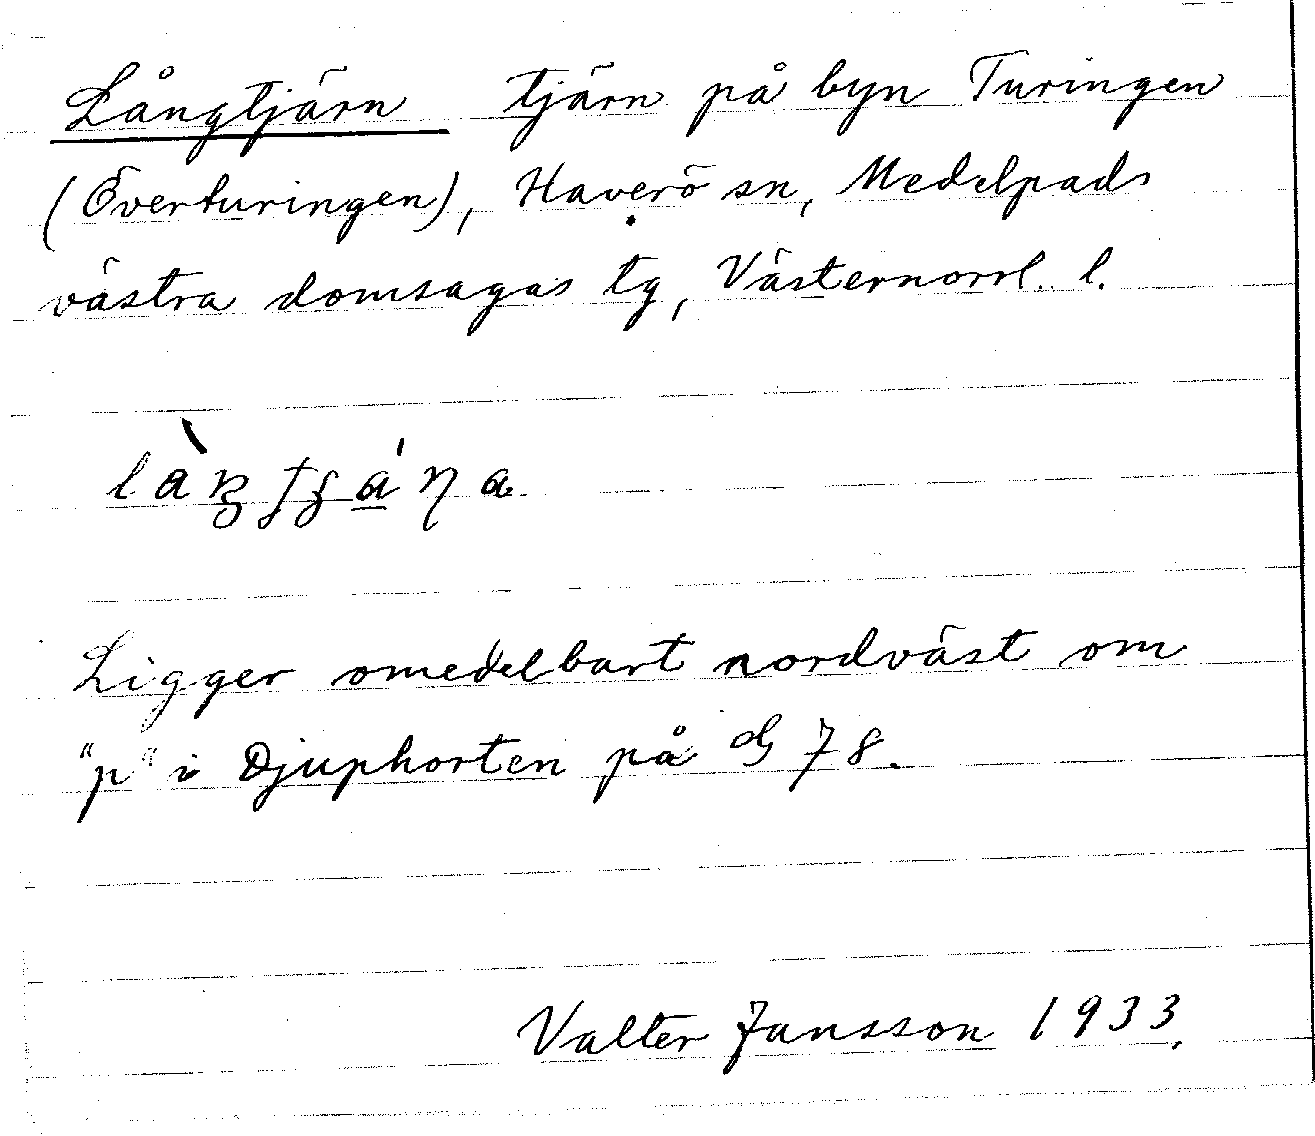 Långtjärn tjärn på byn Turingen
(Överturingen), Haverö sn, Medelpads
västra domsagas tg, Västernorrl. l.
Ligger omedelbart nordväst om
"p" i Djuphorten på G 78.
Valter Jansson 1933.